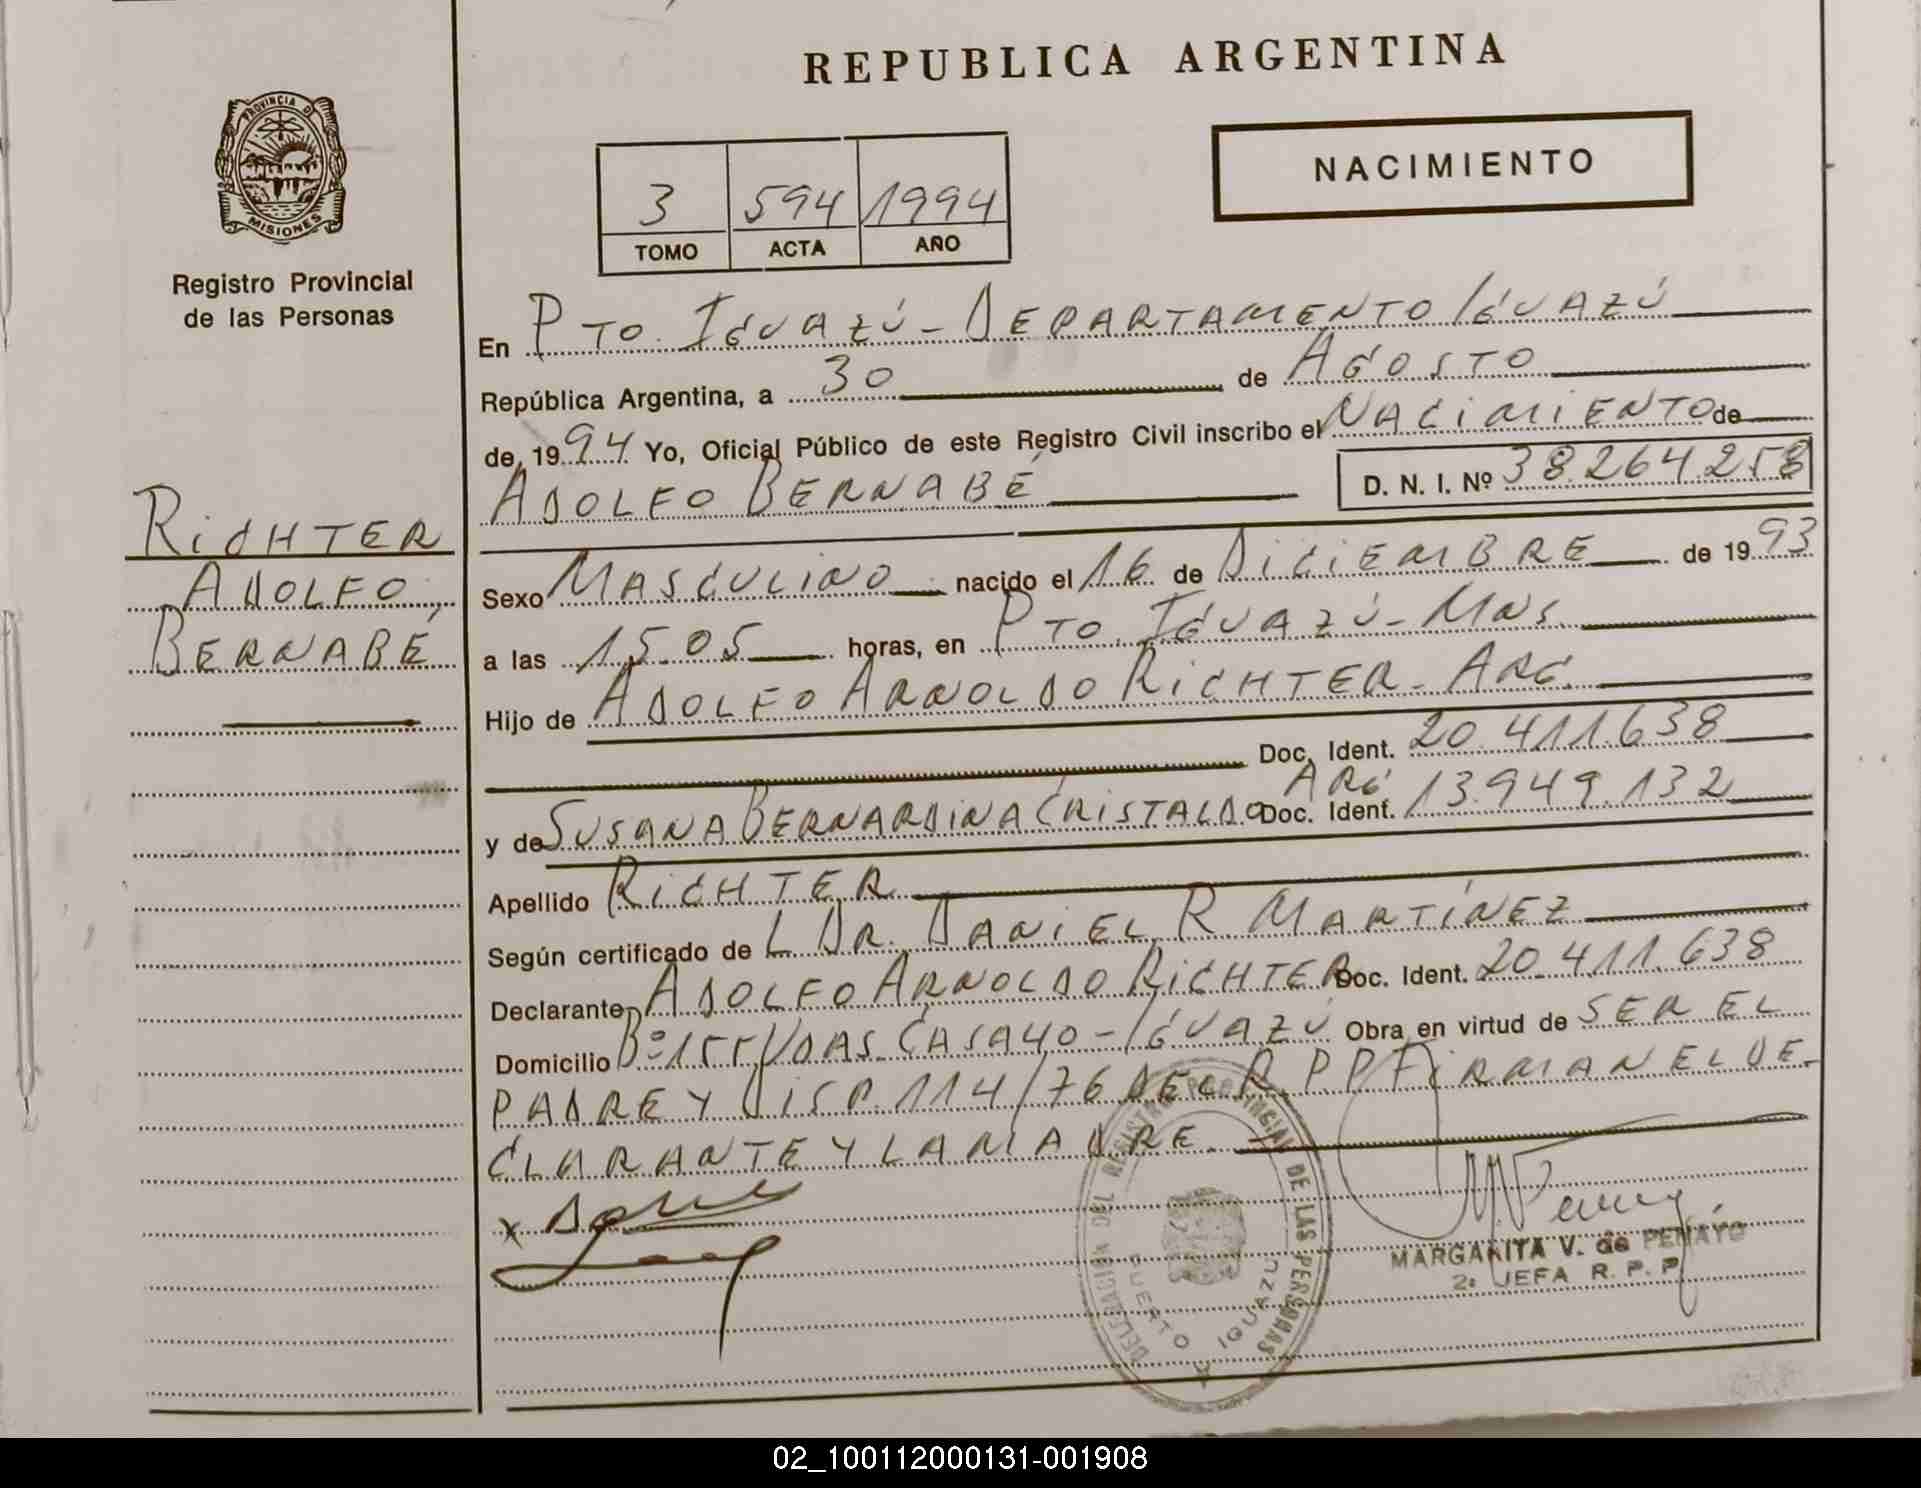 REPUBLICA ARGENTINA
PROVINCIA DE
MISIONES
Registro Provincial
de las Personas
NACIMIENTO
3 594 1994
TOMO ACTA AÑO
RICHTER
ADOLFO
BERNABÉ
En PTO. IGUAZÚ - DEPARTAMENTO IGUAZÚ
República Argentina, a 30 de AGOSTO
de 1994 Yo, Oficial Público de este Registro Civil inscribo el NACIMIENTO de
ADOLFO BERNABÉ D. N. I. Nº 38.264.258
Sexo MASCULINO nacido el 16 de DICIEMBRE de 1993
a las 15.05 horas, en PTO. IGUAZÚ - MNS.
Hijo de ADOLFO ARNOLDO RICHTER - ARG.
Doc. Ident. 20.411.638
ARG
y de SUSANA BERNARDINA CRISTALDO Doc. Ident. 13.949.132
Apellido RICHTER
Según certificado de L DR. DANIEL R MARTÍNEZ
Declarante ADOLFO ARNOLDO RICHTER Doc. Ident. 20.411.638
Domicilio Bº 155 VDAS. CASA 40 - IGUAZÚ Obra en virtud de SER EL
PADRE Y DISP. 114/76 DEL R.P.P FIRMAN EL DE-
CLARANTE Y LA MADRE.
DELEGACION DEL REGISTRO PROVINCIAL DE LAS PERSONAS
PUERTO IGUAZU
MARGARITA V. de PENAYO
2ª JEFA R. P. P.
02_100112000131-001908